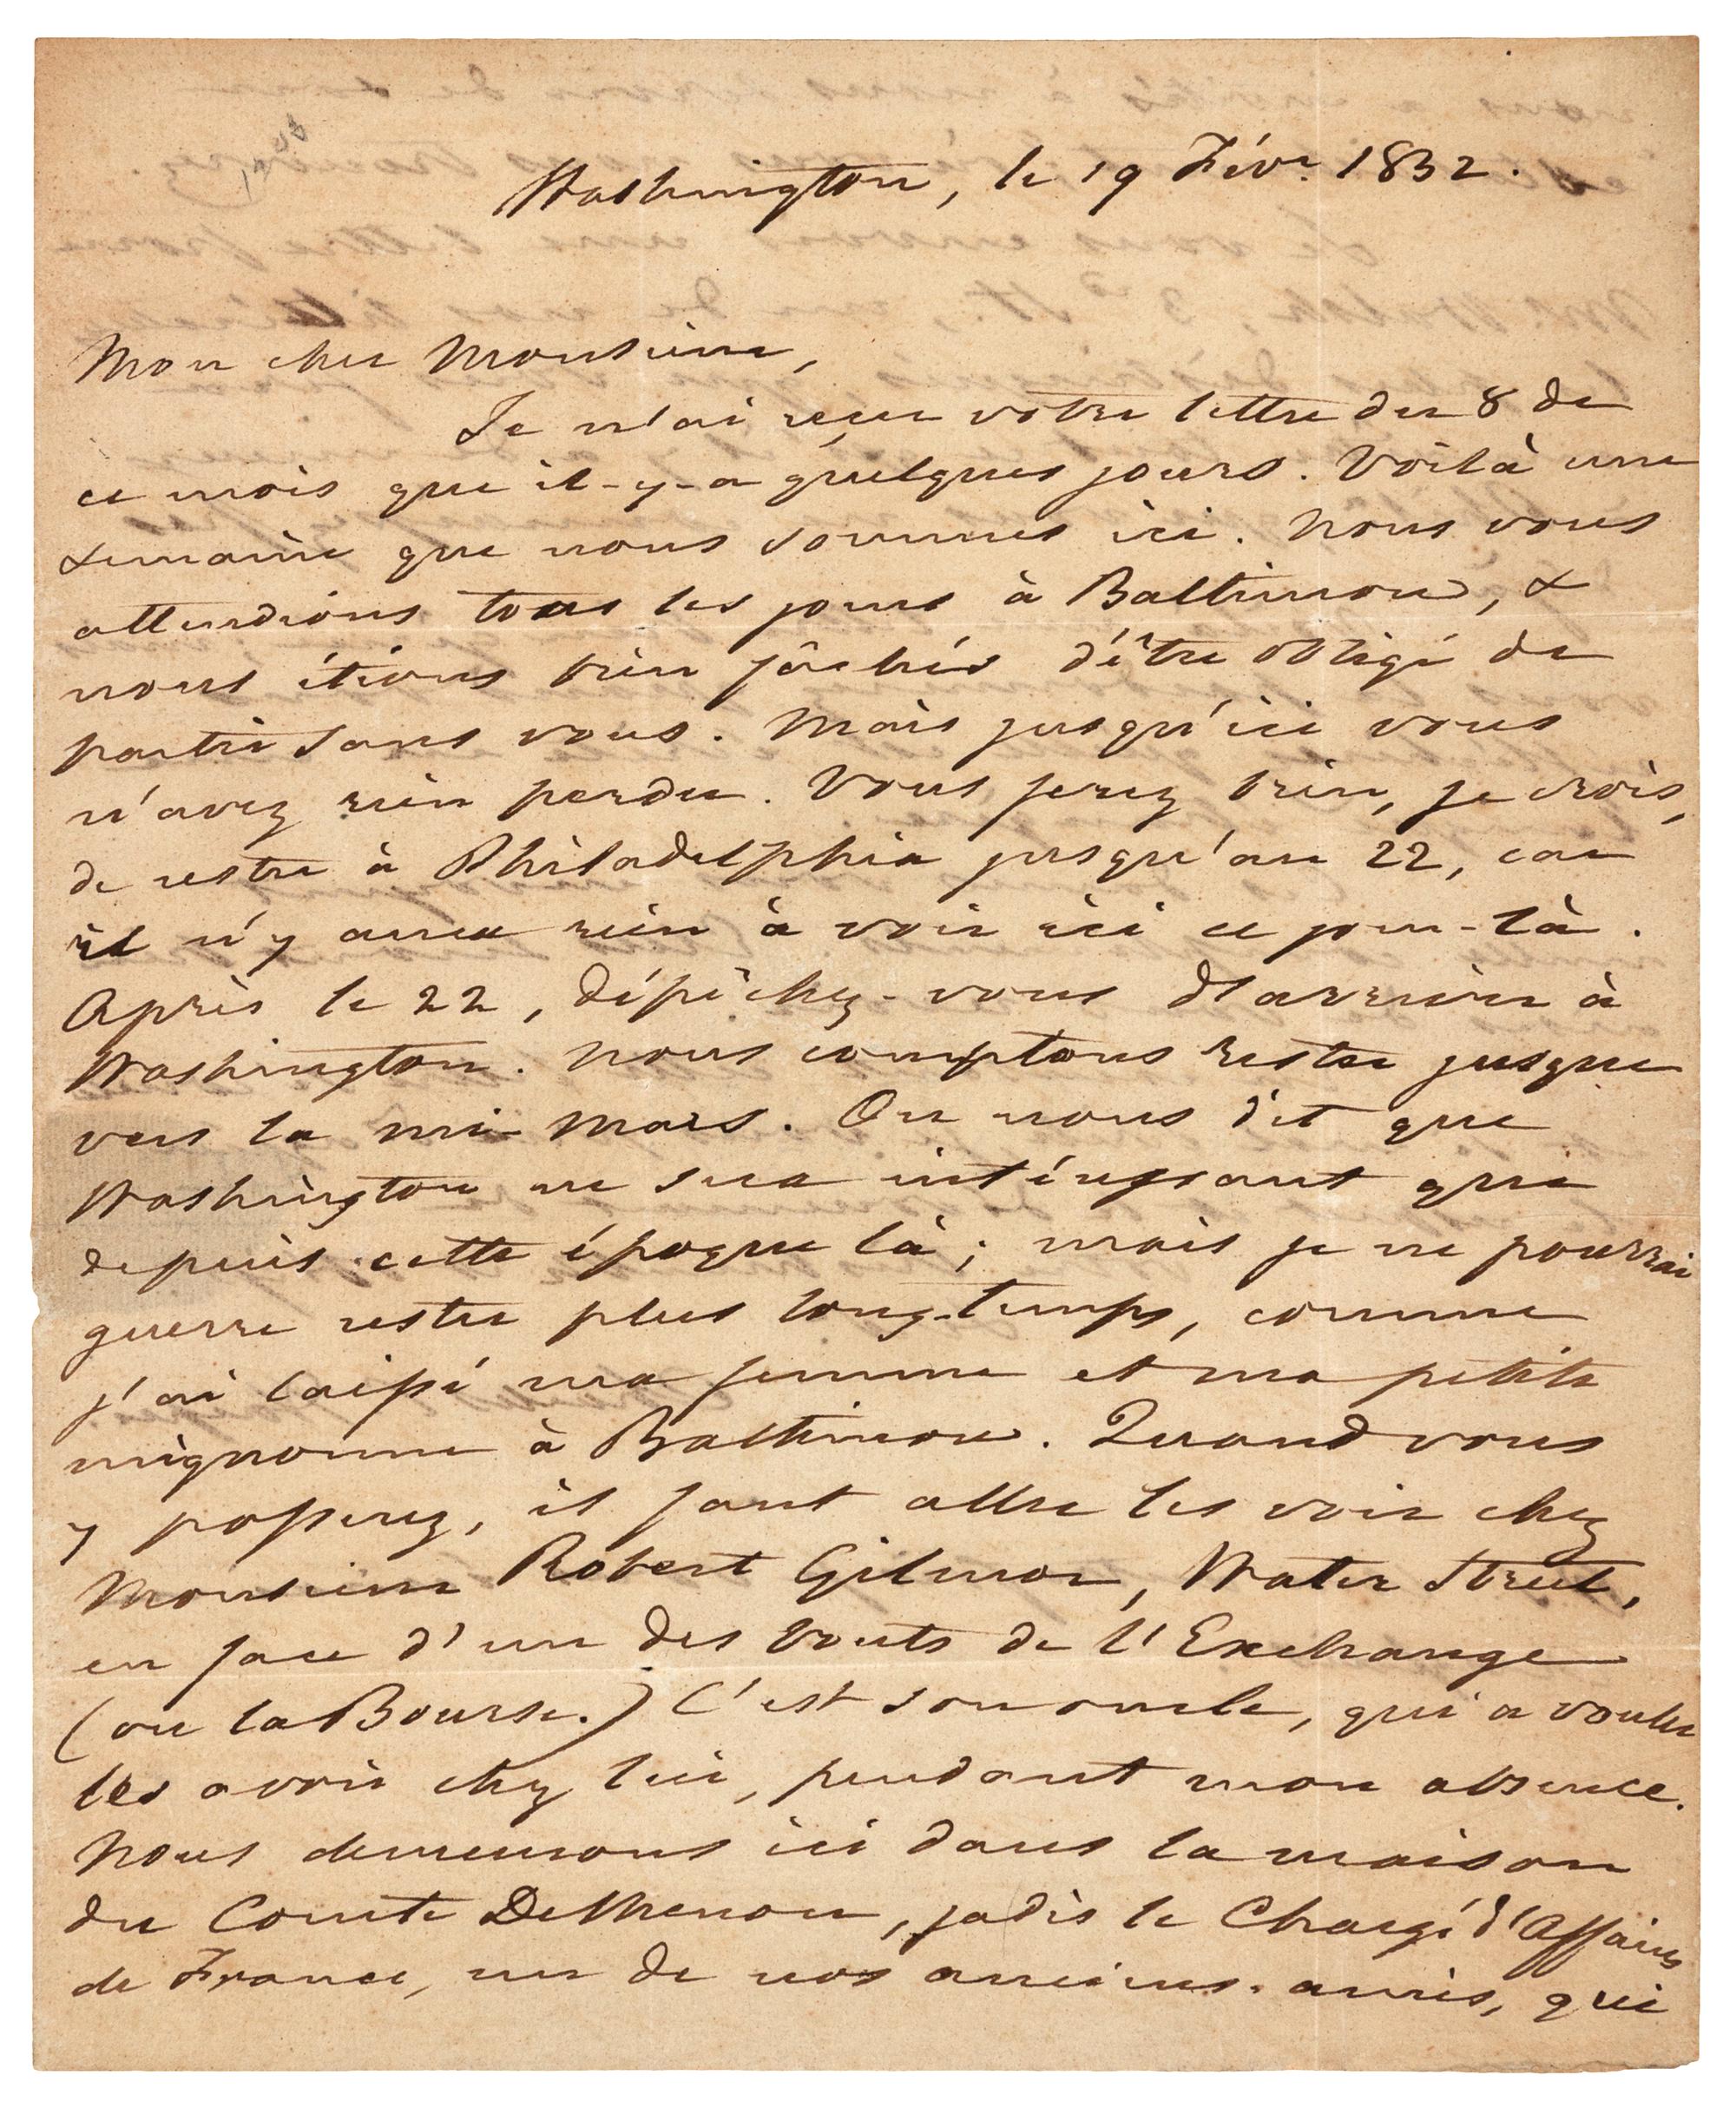 Washington, le 19 Févr. 1832.
Mon cher Monsieur,
Je n'ai reçu votre lettre du 8 de
ce mois que il-y-a quelques jours. Voilà une
semaine que nous sommes ici. Nous vous
attendions tous les jours à Baltimore, &
nous étions bien fâchés d'être obligé de
partir sans vous. Mais jusqu'ici vous
n'avez rien perdu. Vous ferez bien, je crois,
de rester à Philadelphia jusqu'au 22, car
il n'y aura rien à voir ici ce jour-là.
Après le 22, dépêchez-vous d'arriver à
Washington. Nous comptons rester jusque
vers la mi-Mars. On nous dit que
Washington ne sera intéressant que
depuis cette époque là; mais je ne pourrai
guerre rester plus long-temps, comme
j'ai laissé ma femme et ma petite
mignonne à Baltimore. Quand vous
y passerez, il faut aller les voir chez
Monsieur Robert Gilmor, Water Street,
en face d'un des bouts de l'Exchange
(ou la Bourse.) C'est son oncle, qui a voulu
les avoir chez lui, pendant mon absence.
Nous demeurons ici dans la maison
du Comte De Menou, jadis le Chargé d'Affaires
de France, un de nos anciens amis, qui